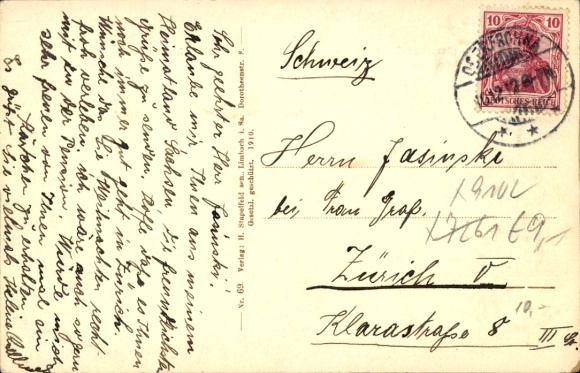 Sehr geehrter Herr Jasinski!
Erlaube mir Ihnen aus meinem
Heimatland Sachsen die freundlichsten
Grüße zu senden, hoffe daß es Ihnen
noch immer gut geht in Zürich.
Wünsche daß Sie Weihnachten recht
froh verleben, ich wäre auch so gern
mit in der Pension. Würde mich
sehr freuen von Ihnen mal ein
Kärtchen zu erhalten.
Es grüßt Sie vielmals Helene
Nr. 69. Verlag: H. Stapelfeld sen., Limbach i. Sa. Dorotheenstr.
Gesetzl. geschützt. 1910.
10 10
DEUTSCHES REICH
Schweiz
Herrn Jasinski
bei Frau Graf.
Zürich V
Klarastraße 8 III
1910L
€9,-
10,-